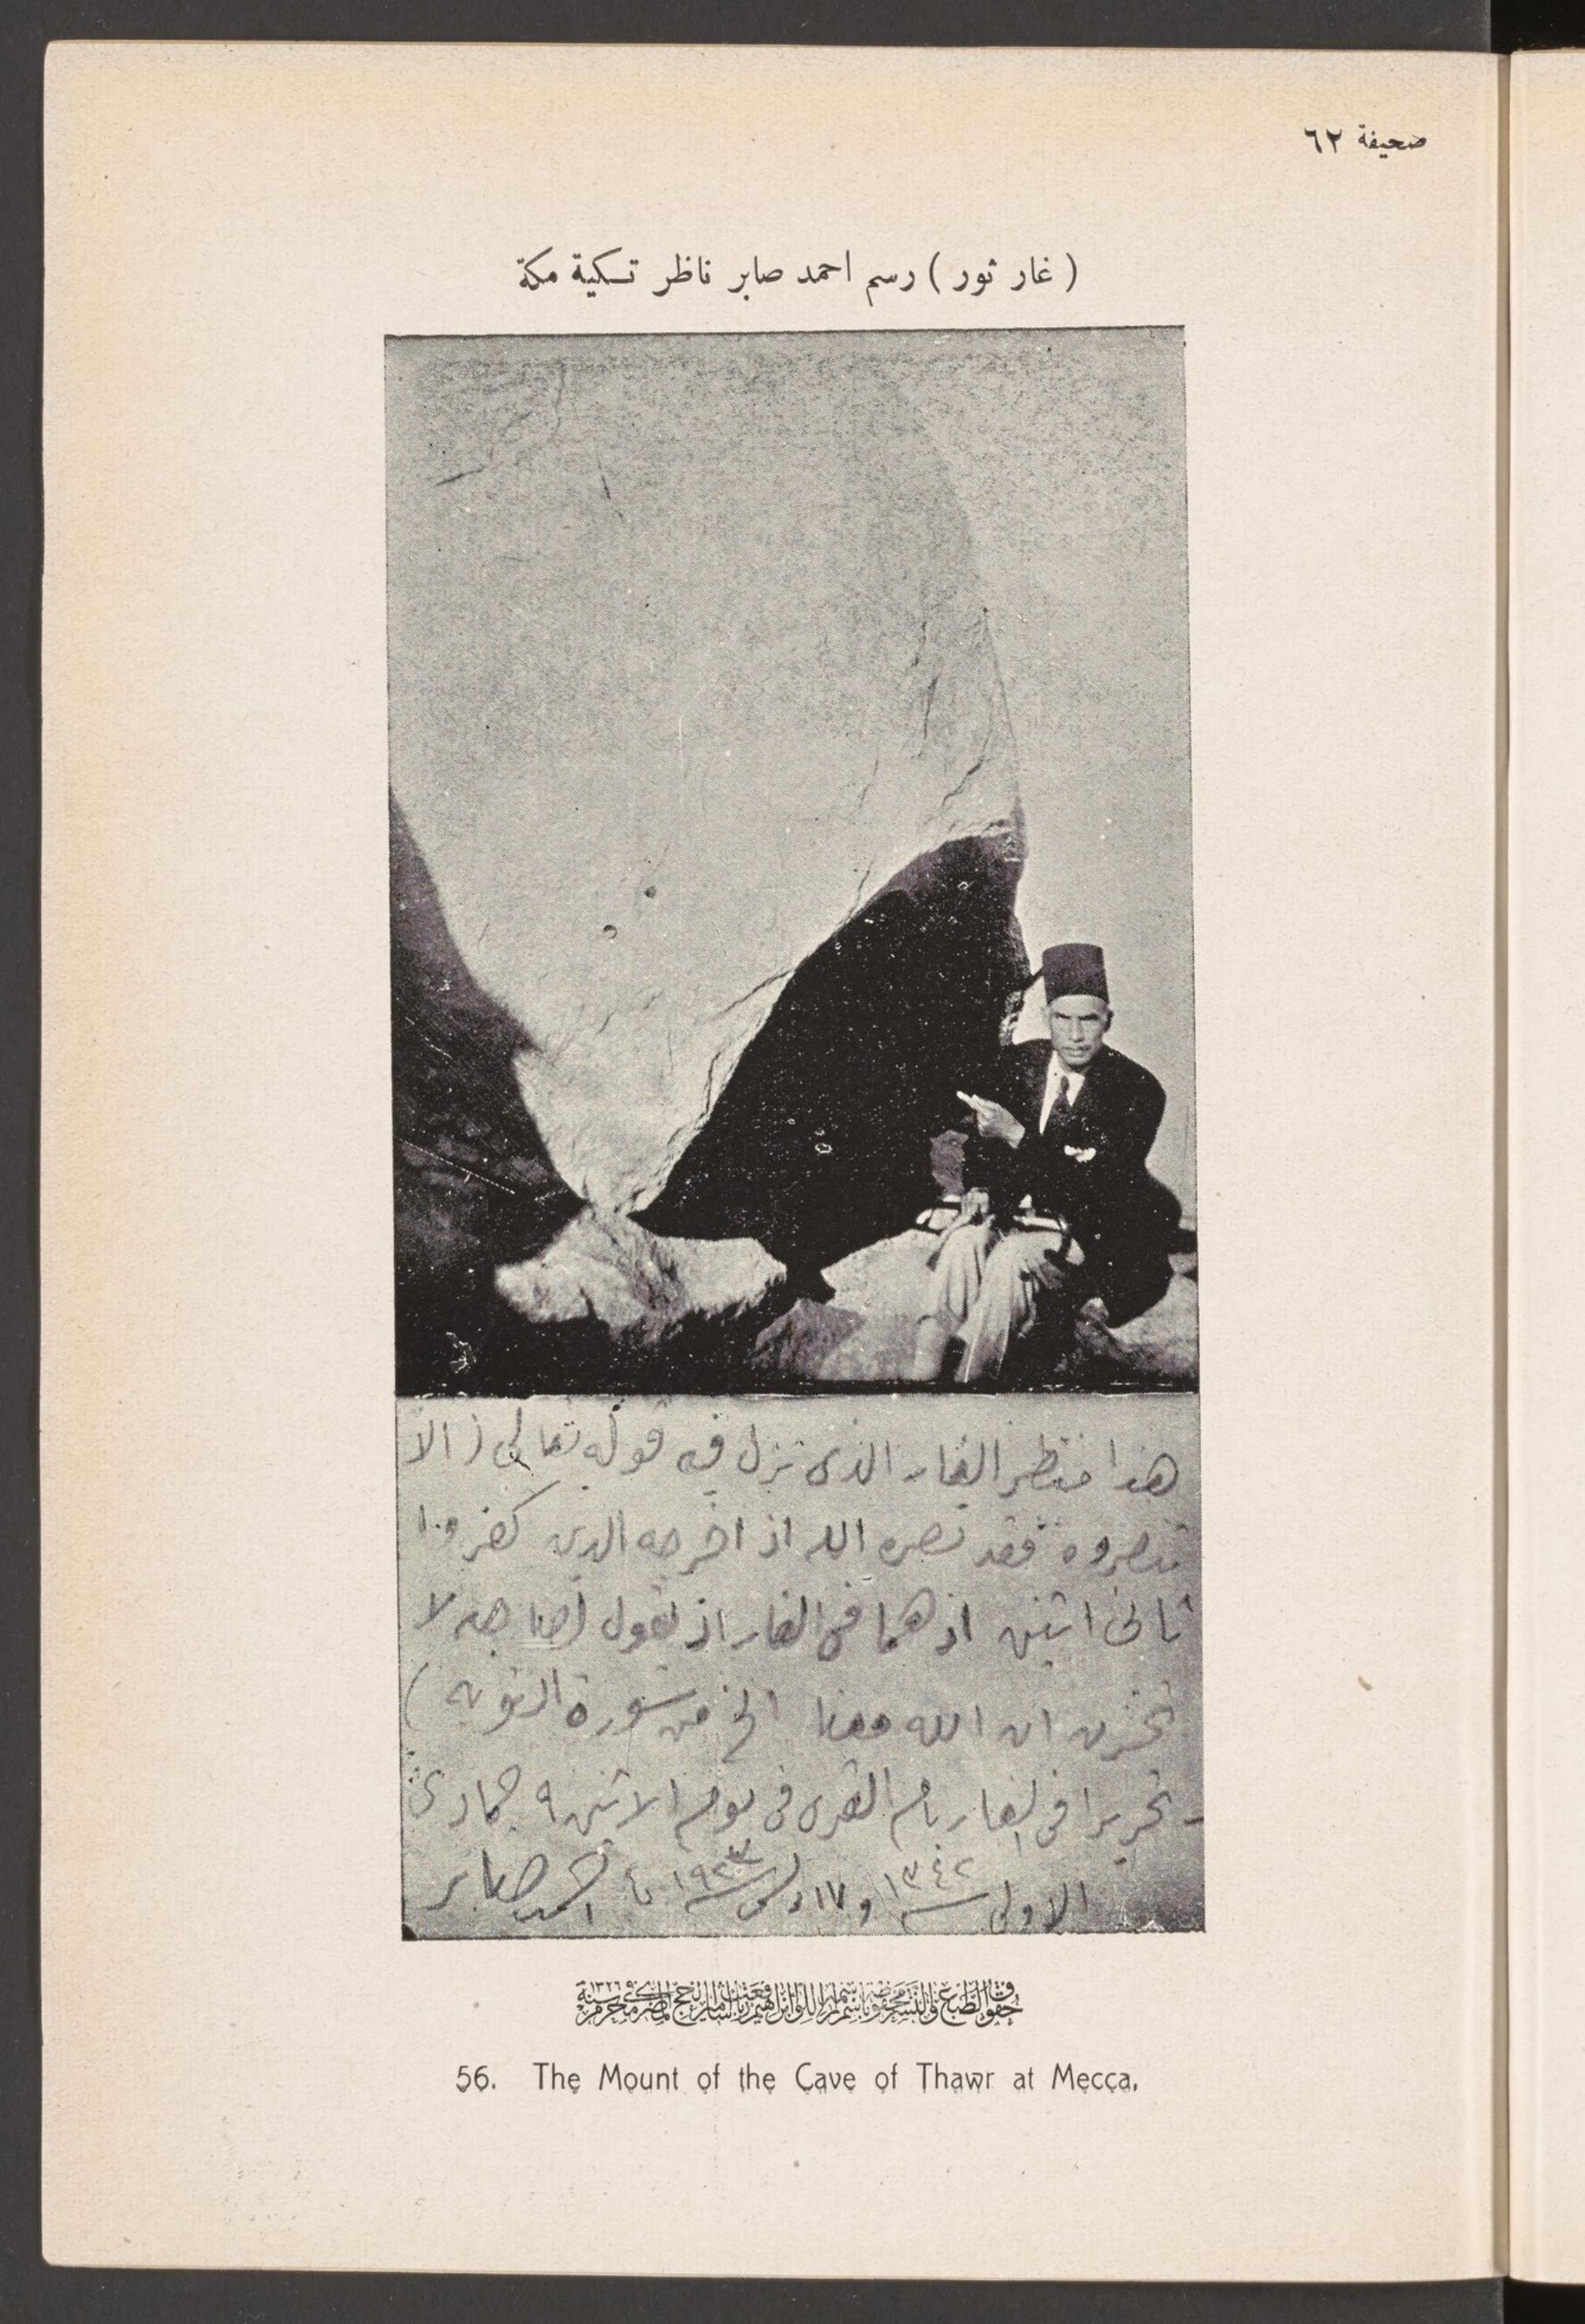 صحيفة ٦٢
( غار ثور ) رسم احمد صابر ناظر تكية مكة
هذا منظر الغار الذى نزل فيه قوله تعالى ( الا
تنصروه فقد نصره الله اذ اخرجه الذين كفروا
ثانى اثنين اذ هما فى الغار اذ يقول لصاحبه لا
تحزن ان الله معنا الخ من سورة التوبة )
تحريرا فى الغار بام القرى فى يوم الاثنين ٩ جمادى
الاولى سنة ١٣٤٢ و ١٧ دسمبر سنة ١٩٢٣ احمد صابر
حقوق الطبع والنشر محفوظة باسم اللوا ابراهيم رفعت باشا امير الحج المصرى محرم سنة
56. The Mount of the Cave of Thawr at Mecca.